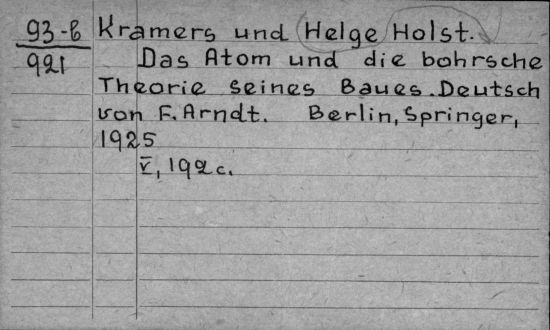 93-В Kramers und Helge Holst.
921 Das Atom und die bohrsche
Theorie seines Baues. Deutsch
von F. Arndt. Berlin, Springer,
1925
V, 192 c.